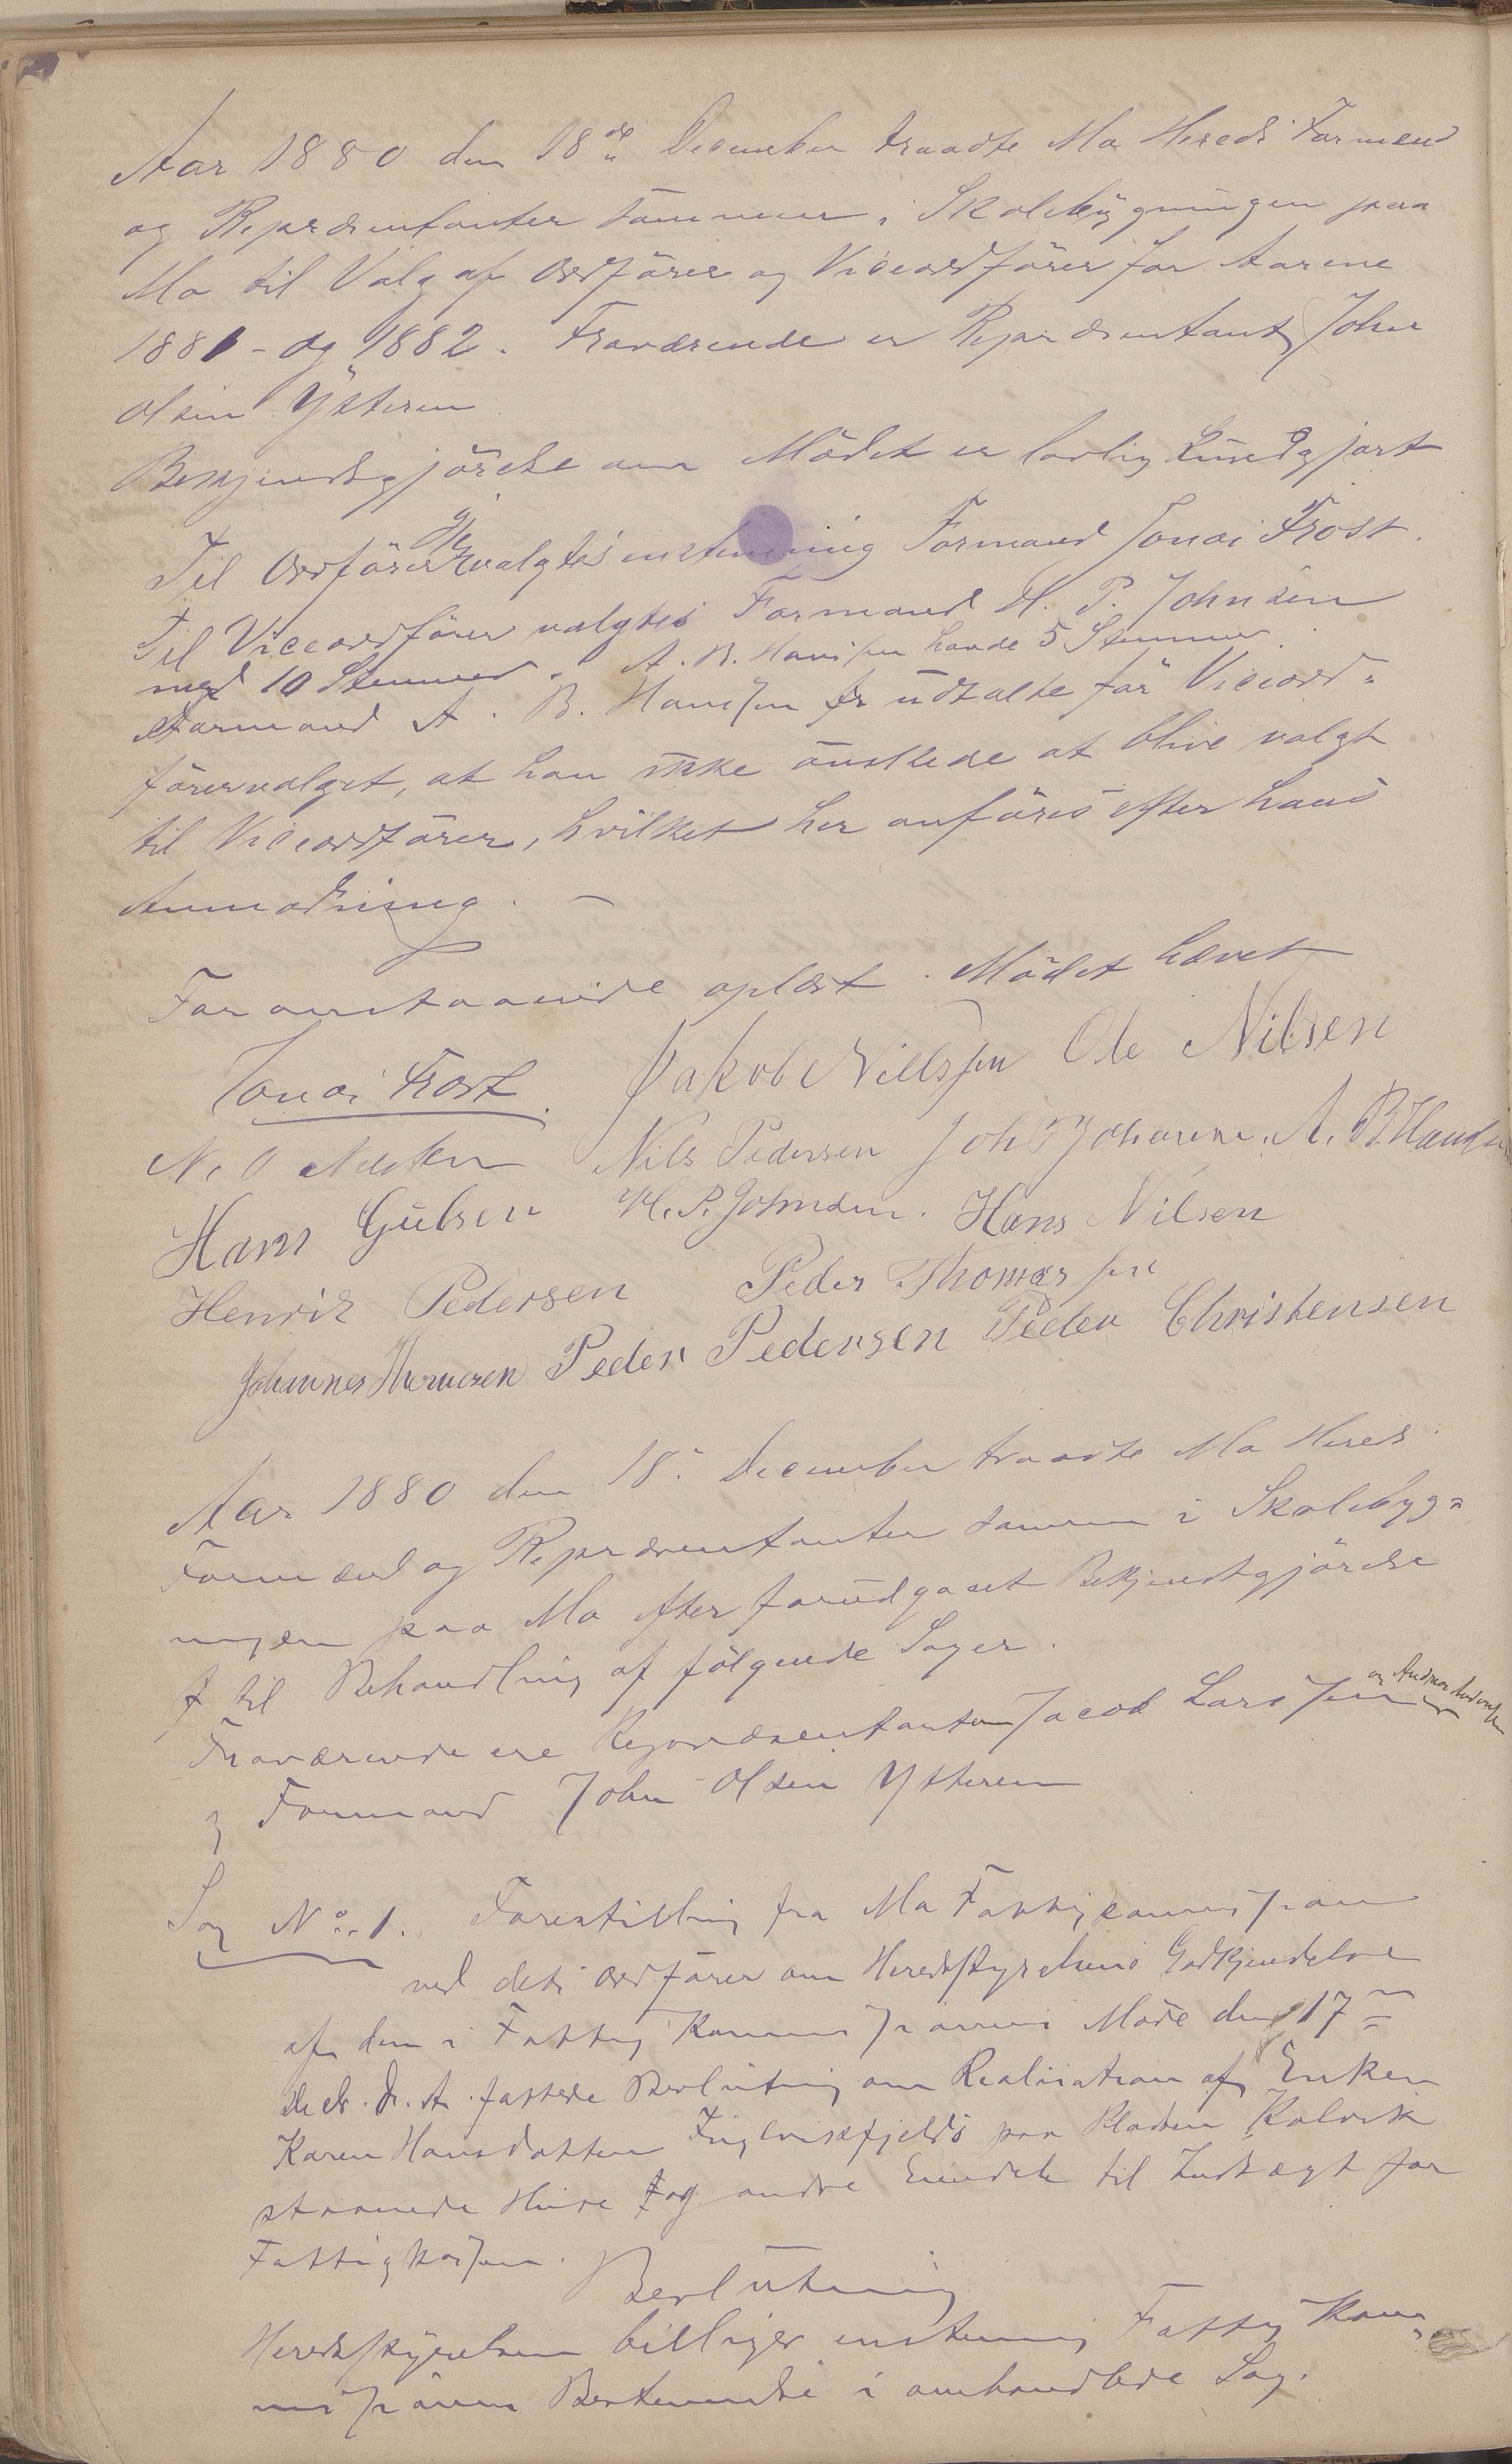 Aar 1880 den 18de December traadte Mo Hereds Formænd
og Repræsentanter sammen i Skolebygningen paa
Mo til Valg af Ordförer og Viceordförer for Aarene
1881 - og 1882. Fraværende er Repræsentant John
Olsen Ytteren
Bekjendtgjörelse om Mödet er lovlig kundgjort
Til Ordförer valgtes enstemmig Formand Jonas Frost.
Til Viceordförer valgtes Formand H. P. Johnsen
med 10 Stemmer. A. B. Hanssen havde 5 Stemmer.
Formand A. B. Hanssen udtalte för Viceord-
förervalget, at han ikke önskede at blive valgt
til Viceordförer, hvilket her anföres efter hans
Anmodning. —
Foranstaaende oplæst. Mödet hævet
Jonas Frost. Jakob Nielssen Ole Nilsen
N. O. Nilssen Nils Pedersen Joh Johansen. A. B. Hanssen
Hans Gulsen H. P. Johnsen. Hans Nilsen
Henrik Pedersen Peder Thomassen
Johannes Thomesen Peder Pedersen Peder Christensen
Aar 1880 den 18. December traadte Mo Hereds
Formænd og Repræsentanter sammen i Skolebyg-
ningen paa Mo efter forudgaaet Bekjendtgjörelse
til Behandling af fölgende Sager.
Fraværende ere Repræsentanterne Jacob Larssen og
og Formand John Olsen Ytteren
Sag No 1. Forestilling fra Mo Fattigcommission
ved dets Ordförer om Heredsstyrelsens Godkjendelse
af den i Fattigkommissionens Möde den 17de
Decbr. d. A. fattede Beslutning om Realisation af Enken
Karen Hansdatter Fuglvikfjelds paa Pladsen Kalvik
staaende Huse og andre Eiendele til Indtægt for
Fattigkassen.
Beslutning
Heredsstyrelsen billiger enstemmig Fattigkom-
missionens Bestemmelse i omhandlede Sag.